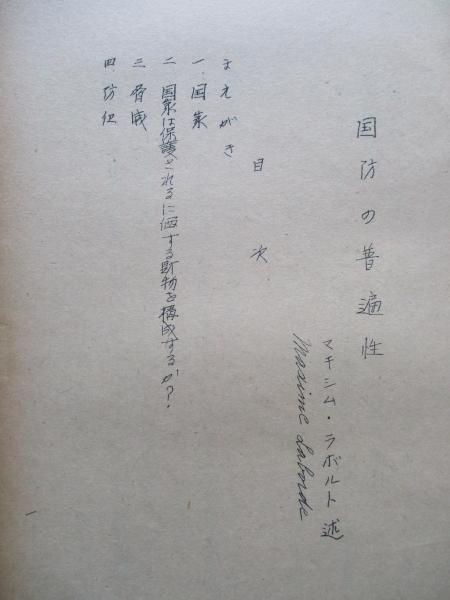 国防の普遍性
マキシム・ラボルト述
Maxime Laborde
目次
まえがき
一 国家
二 国家は保護されるに価する財物を構成するか？
三 脅威
四 防衛